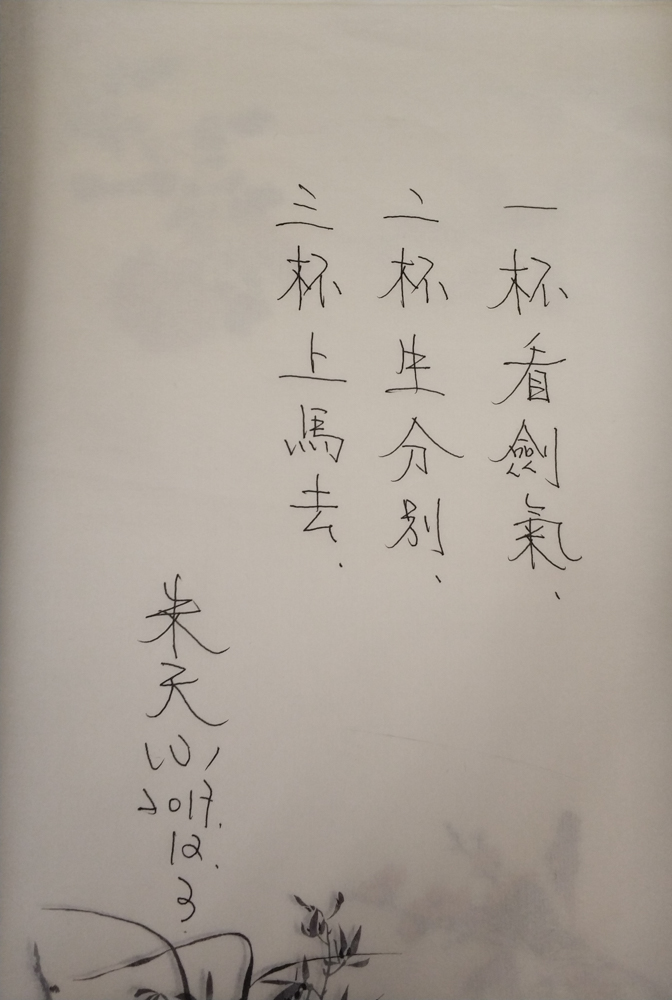 一杯看劍氣、
二杯生分别、
三杯上馬去、
朱天心
2017.
12.
3